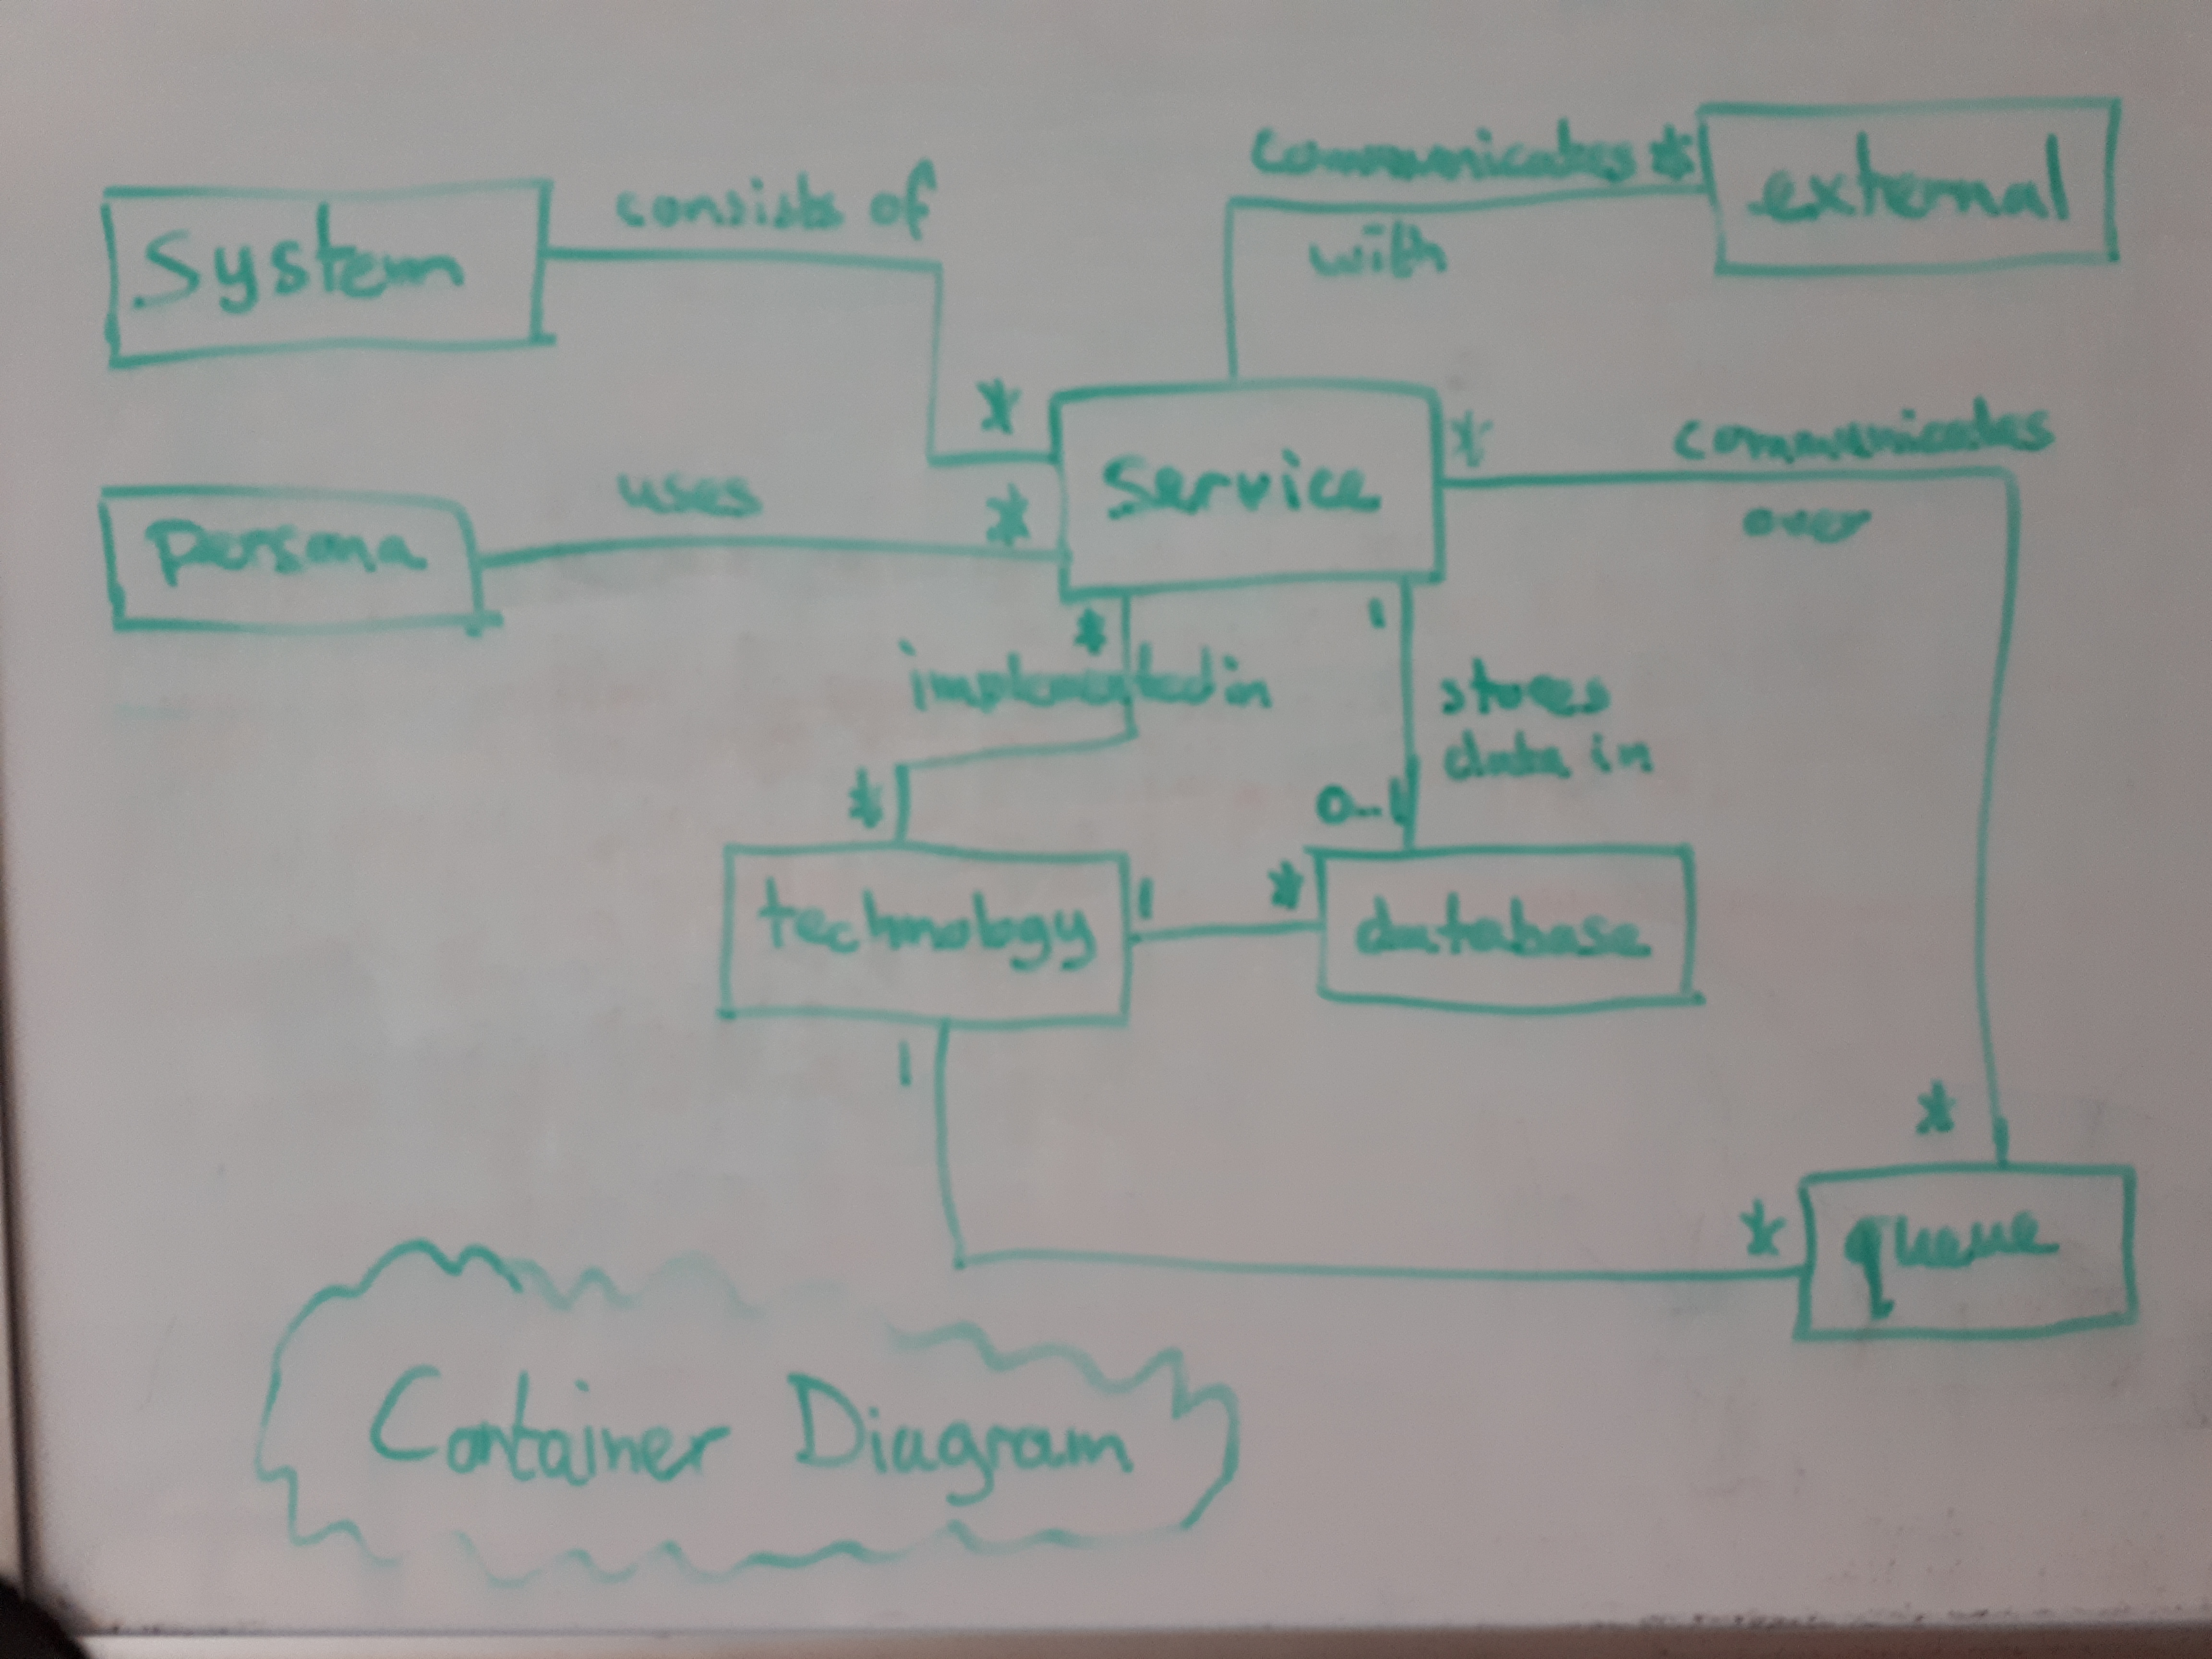 System
consists of
*
communicates *
with
external
persona
uses
*
service
*
communicates
over
*
implemented in
*
1
stores
data in
0..1
technology
1
*
database
1
*
*
queue
Container Diagram